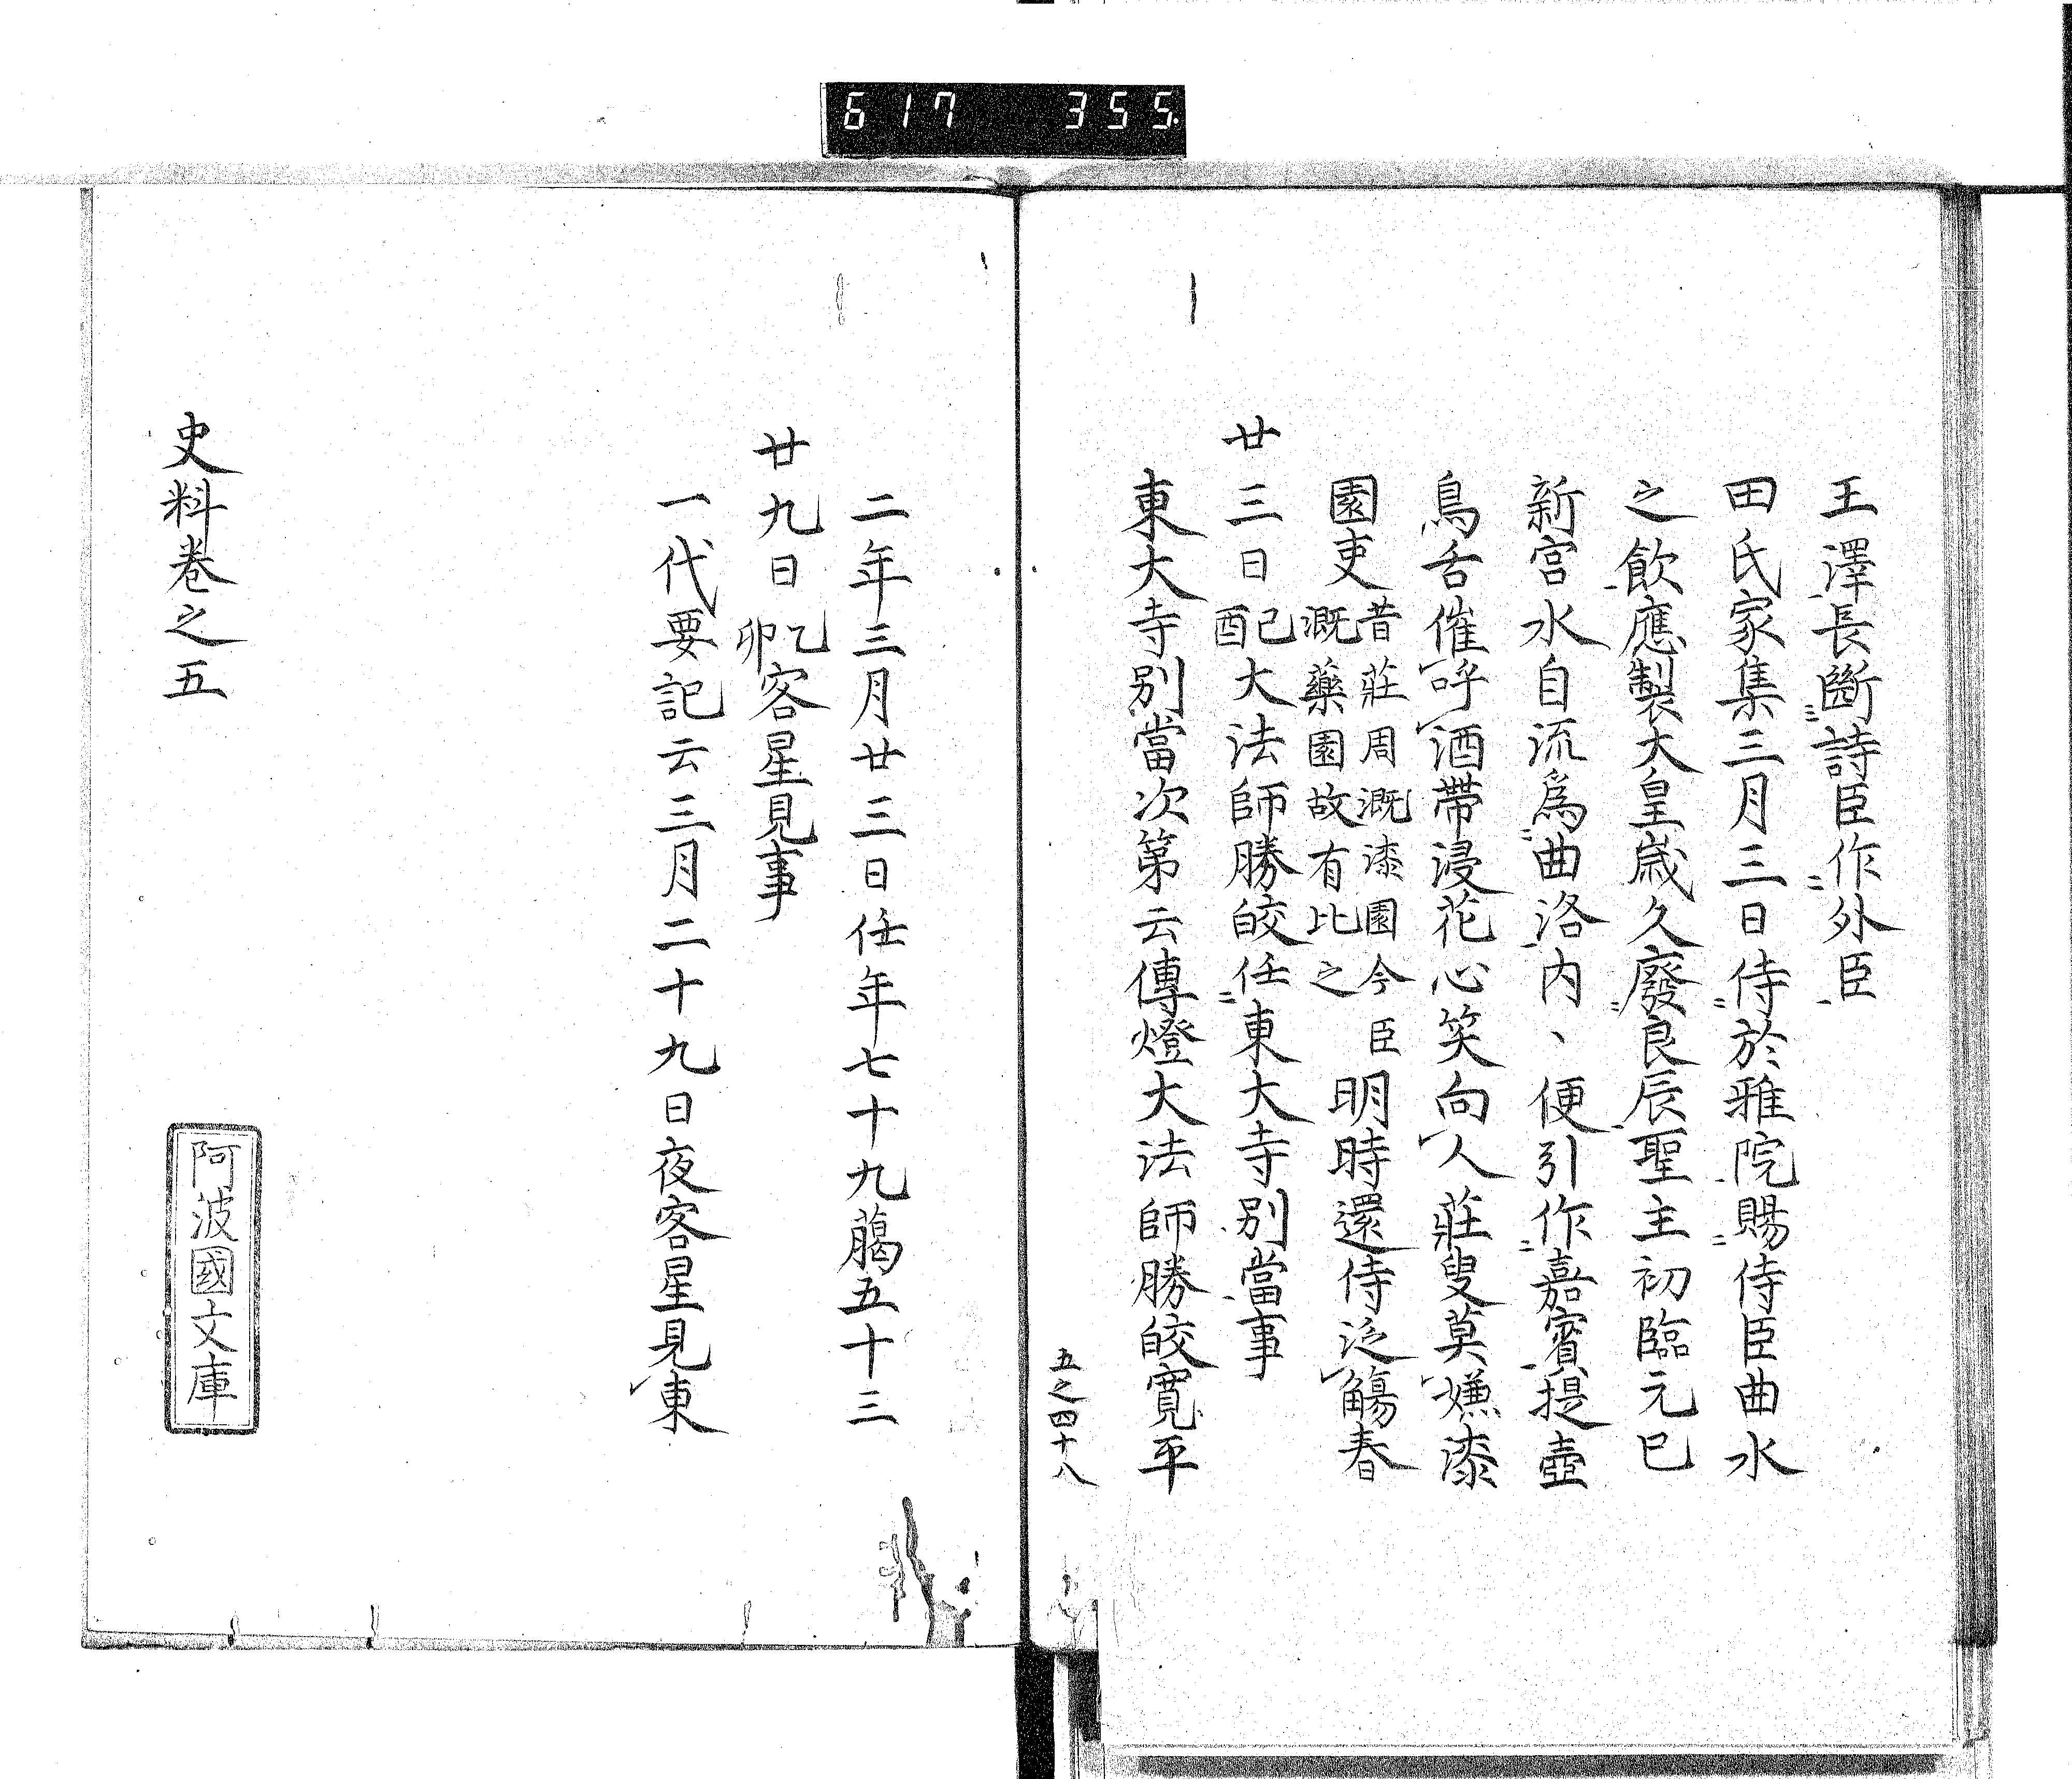 617 355
王澤長斷詩臣作外臣
田氏家集三月三日侍於雅院賜侍臣曲水
之飲應製大皇歲久廢良辰聖主初臨元巳
新宮水自流爲曲洛內、便引作嘉賓提壺
鳥舌催呼酒帶浸花心笑向人莊叟莫嫌漆
園吏昔莊周漑漆園今臣漑藥園故有比之明時還侍泛觴春
廿三日己酉大法師勝皎任東大寺別當事
東大寺別當次第云傳燈大法師勝皎寬平
五之四十八
二年三月廿三日任年七十九﨟五十三
廿九日乙卯客星見事
一代要記云三月二十九日夜客星見東
史料卷之五
阿波國文庫